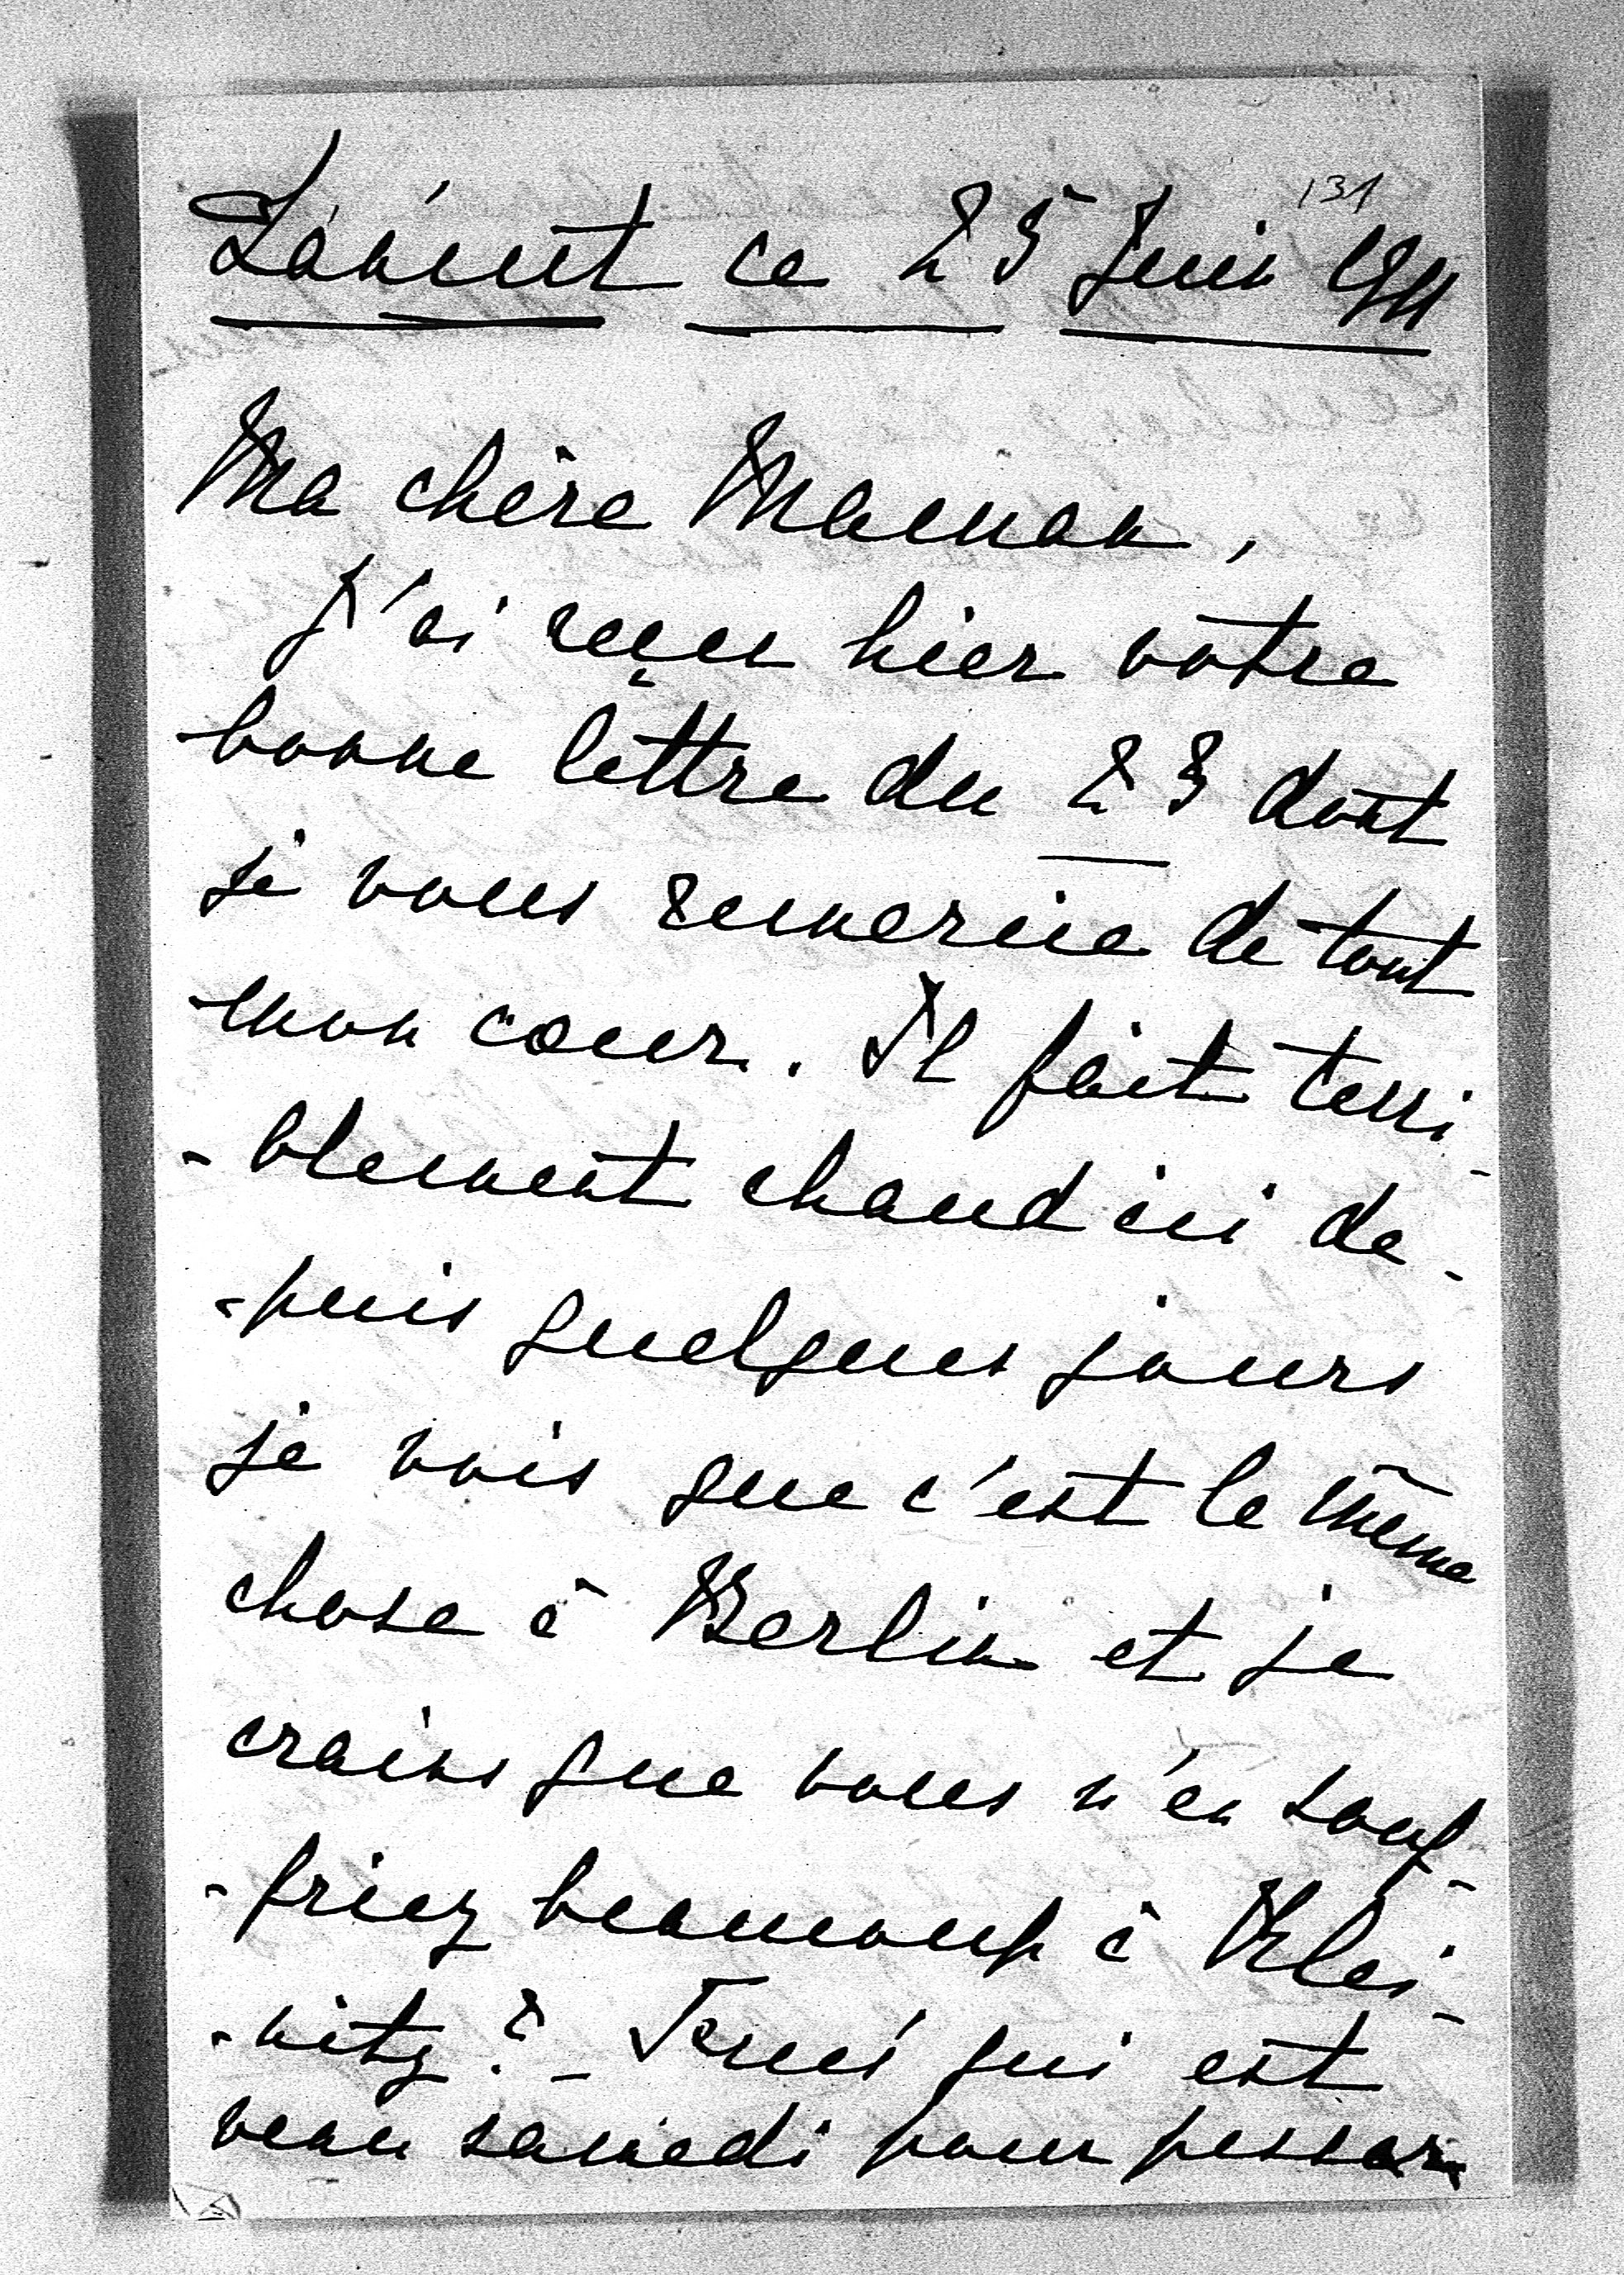 131
Łańcut ce 25 Juin 1911
Ma chère Maman,
J'ai reçu hier votre
bonne lettre du 23 dont
je vous remercie de tout
mon coeur. Il fait terri-
-blement chaud ici de-
-puis quelques jours
je vois que c'est la même
chose à Berlin et je
crains que vous n'en souf-
-friez beaucoup à Klei-
-nitz ? _ qui est
venu samedi pour passer